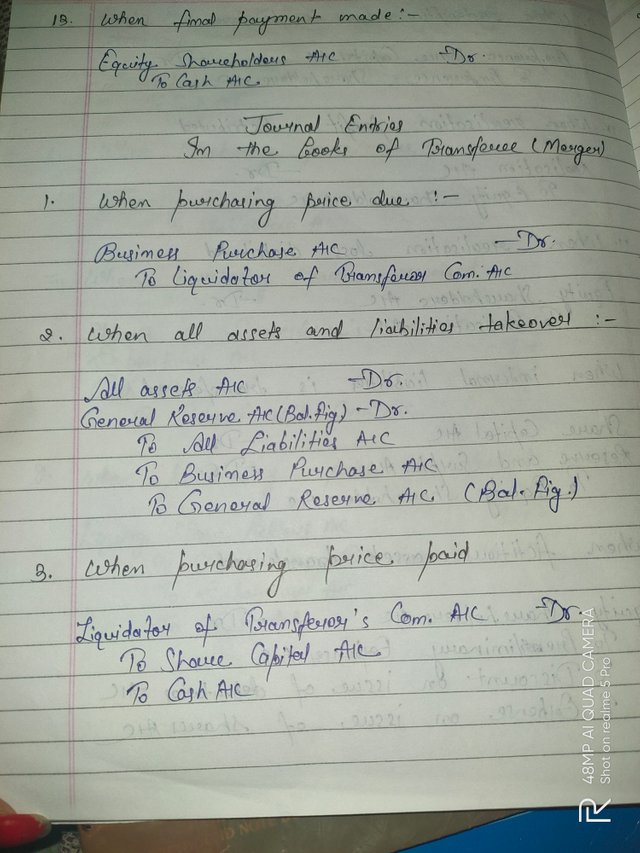 13. When final payment made :-
Equity Shareholders A/C -Dr.
To Cash A/C
Journal Entries
In the books of Transferee (Merger)
1. When purchasing price due :-
Business Purchase A/C -Dr.
To Liquidator of Transferor Com. A/C
2. When all assets and liabilities takeover :-
All assets A/C -Dr.
General Reserve A/C (Bal. fig) -Dr.
To All Liabilities A/C
To Business Purchase A/C
To General Reserve A/C (Bal. fig.)
3. When purchasing price paid
Liquidator of Transferor's Com. A/C -Dr.
To Share Capital A/C
To Cash A/C
48MP AI QUAD CAMERA
Shot on realme 5 Pro